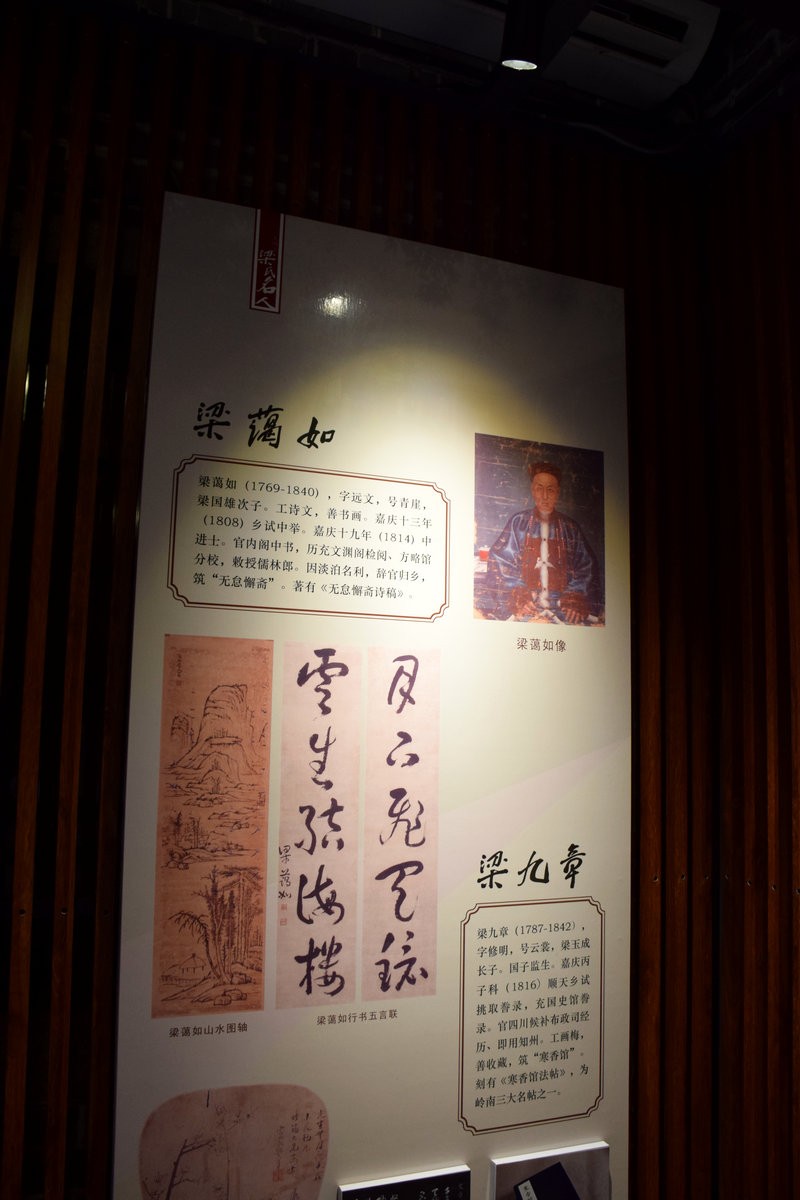 梁氏名人
梁蔼如
梁蔼如（1769-1840），字远文，号青崖，
梁国雄次子。工诗文，善书画。嘉庆十三年
（1808）乡试中举。嘉庆十九年（1814）中
进士。官内阁中书，历充文渊阁检阅、方略馆
分校，敕授儒林郎。因淡泊名利，辞官归乡，
筑“无怠懈斋”。著有《无怠懈斋诗稿》。
梁蔼如像
月下飞天镜
云生结海楼
梁蔼如
梁蔼如山水图轴
梁蔼如行书五言联
梁九章
梁九章（1787-1842），
字修明，号云裳，梁玉成
长子。国子监生。嘉庆丙
子科（1816）顺天乡试
挑取誊录，充国史馆誊
录。官四川候补布政司经
历、即用知州。工画梅，
善收藏，筑“寒香馆”。
刻有《寒香馆法帖》，为
岭南三大名帖之一。